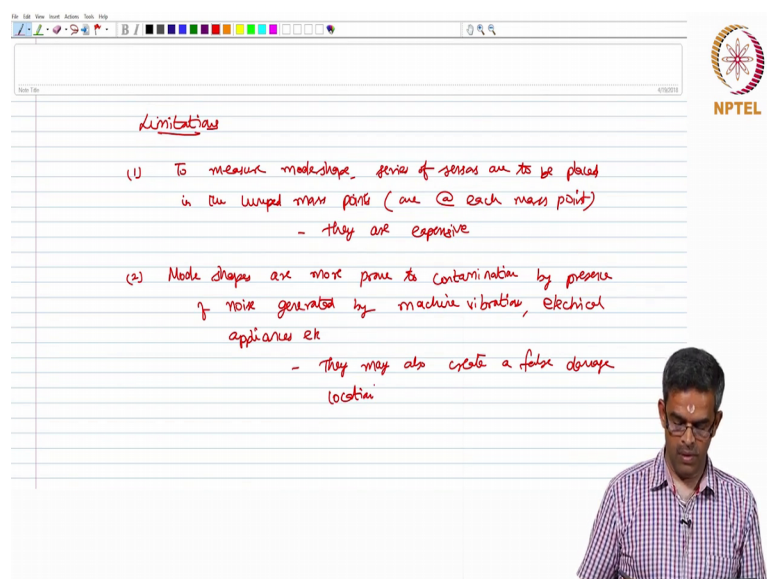 File Edit View Insert Actions Tools Help
B I
NPTEL
Note Title
4/19/2018
Limitations
(1) To measure modeshape, series of sensors are to be placed
in the lumped mass points (one @ each mass point)
- they are expensive
(2) Mode shapes are more prone to contamination by presence
of noise generated by machine vibration, electrical
appliances etc
- They may also create a false damage
location